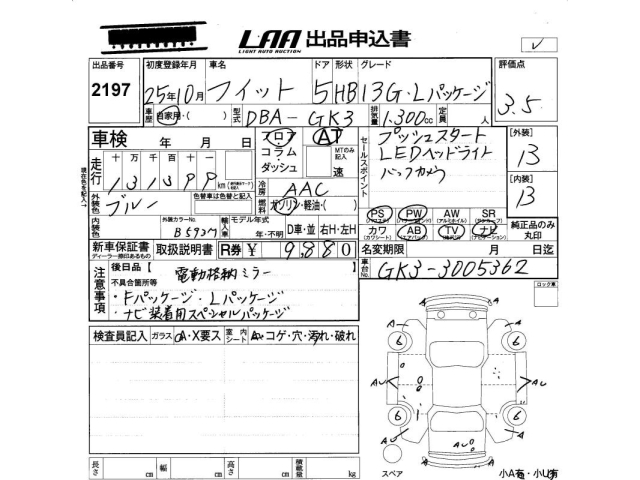 LAA 出品申込書
LIGHT AUTO AUCTION
出品番号 初度登録年月 車名 ドア 形状 グレード 評価点
2197 25年10月 フィット 5 HB 13G・Lパッケージ 3.5
車歴 自家用・( ) 型式 DBA-GK3 排気量 1.300cc 定員 人
車検 年 月 日 フロア AT セールスポイント プッシュスタート [外装]
走行 十万千百十 コラム・ MTのみ記入 LEDヘッドライト 13
ダッシュ 速 バックカメラ
131399 km 冷房 AAC [内装]
外装色 ブルー 色替車は色替と記入 燃料 ガソリン・軽油・( ) 13
現在色を記入↑
外装カラーNo. 輸入車 モデル年式 PS PW AW SR
B593M 年・不明 D車・並 右H・左H カワ AB TV ナビ 純正品のみ丸印
新車保証書 取扱説明書 R券 ¥ 9880 名変期限 月 日迄
ディーラー捺印あるもの
車台No. GK3-3005362
注意事項 後日品【 電動格納ミラー ロック車
不具合箇所等
・Fパッケージ・Lパッケージ
・ナビ装着用スペシャルパッケージ
検査員記入 ガラス A・X要ス 室内シート コゲ・穴・汚れ・破れ
A A
6 6
AU AU
6 6
AU
AU A
長さ cm 幅 cm 高さ cm 積載量 kg
スペア 小A有・小U有